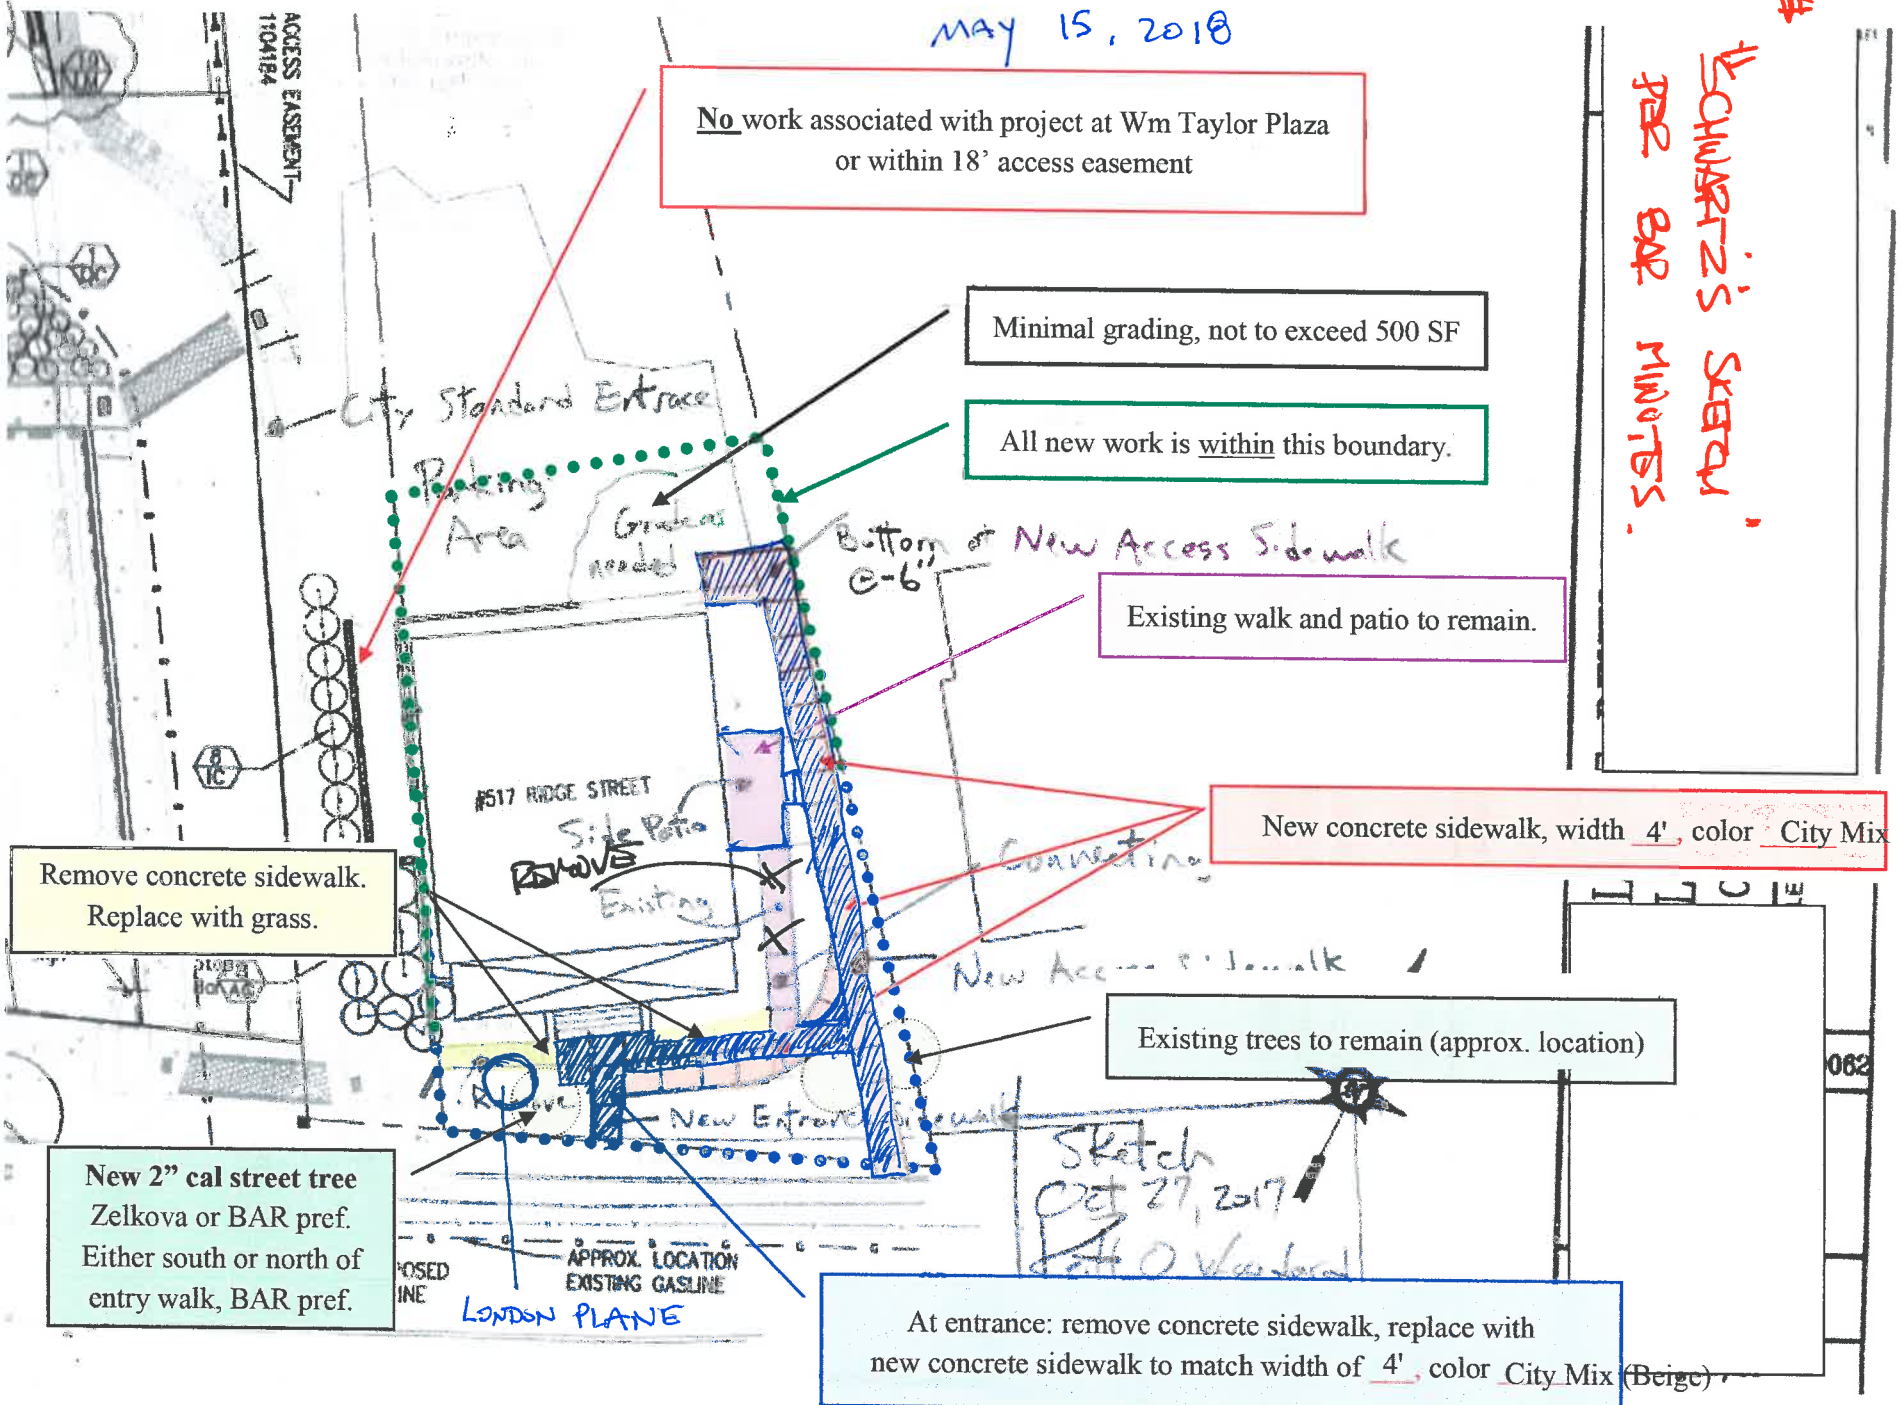 MAY 15, 2018
"SCHWARTZ'S SKETCH"
PER BAR MINUTES.
ACCESS EASEMENT
1104184
No work associated with project at Wm Taylor Plaza
or within 18' access easement
Minimal grading, not to exceed 500 SF
City Standard Entrace
All new work is within this boundary.
Parking
Area
Grade as
needed
Bottom of New Access Sidewalk
@-6"
Existing walk and patio to remain.
8
1C
#517 RIDGE STREET
Side Patio
REMOVE
Existing
New concrete sidewalk, width 4', color City Mix
Connecting
Remove concrete sidewalk.
Replace with grass.
New Access Sidewalk
Existing trees to remain (approx. location)
062
Remove
New Entrance Sidewalk
Sketch
Oct 27, 2017
New 2" cal street tree
Zelkova or BAR pref.
Either south or north of
entry walk, BAR pref.
OSED
INE
APPROX. LOCATION
EXISTING GASLINE
G G G
LONDON PLANE
At entrance: remove concrete sidewalk, replace with
new concrete sidewalk to match width of 4', color City Mix (Beige)